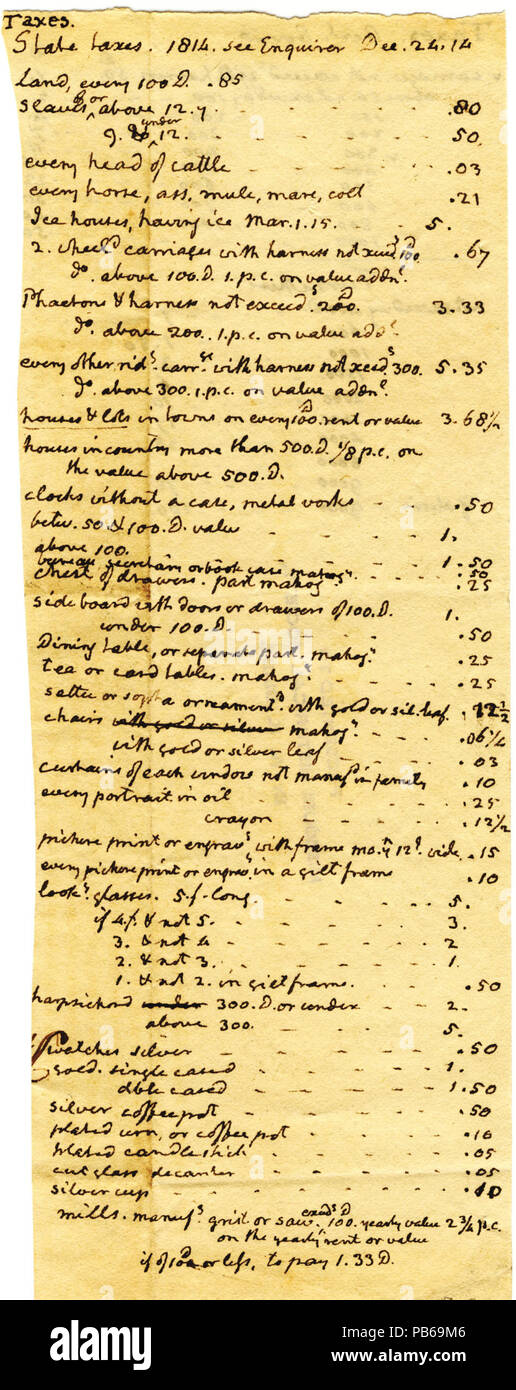 Taxes.
State taxes. 1814. see Enquirer Dec. 24. 14
Land, every 100 D. .85
slaves or above 12. y. .80
9. & under 12. 50
every head of cattle .03
every horse, ass, mule, mare, colt .21
Ice houses, having ice Mar. 1. 15. 5.
2. wheeld carriages with harness not xceedg 100. D .67
do. above 100. D. 1. p. c. on value addnl.
Phaetons & harness not exceedg. 200. D 3.33
do. above 200. 1. p. c. on value addl.
every other ridg. carrge. with harness not xcedg 300. 5.35
do. above 300. 1. p. c. on value addnl.
houses & lots in towns on every 100. D rent or value 3.68½
houses in country more than 500. D. ⅛ p. c. on
the value above 500. D.
clocks without a case, metal works .50
betw. 50 & 100. D. value 1.
above 100. 1.50
bureau secretary or book case mahogy. .50
chest of drawers. part mahogy. .25
side board with doors or drawers of 100. D. 1.
under 100. D .50
Dining table, or part. mahogy. .25
tea or card tables. mahogy. .25
settee or sopha ornamentd. with gold or sil. leaf .12½
chairs with gold or silver mahogy. .06¼
with gold or silver leaf .03
curtains of each window not manufd in family .10
every portrait in oil .25
crayon .12½
picture print or engravg with frame mo. yn 12 I. wide .15
every picture print or engravg in a gilt frame .10
lookg. glasses. 5. f. long 5.
if 4. f. & not 5. 3.
3. & not 4 2
2. & not 3. 1.
1. & not 2. in gilt frame. .50
harpsichord under 300. D. or under 2.
above 300. 5.
watches silver .50
gold. single cased 1.
dble cased 1.50
silver coffee pot .50
plated urn, or coffee pot .10
plated candlestick .05
cut glass decanter .05
silver cup .10
mills. manufg. grist or saw. excdg D 100. yearly value 2¾ p. c.
on the yearly rent or value
if of 100 D or less, to pay 1.33 D.
alamy
alamy stock photo
PB69M6
www.alamy.com